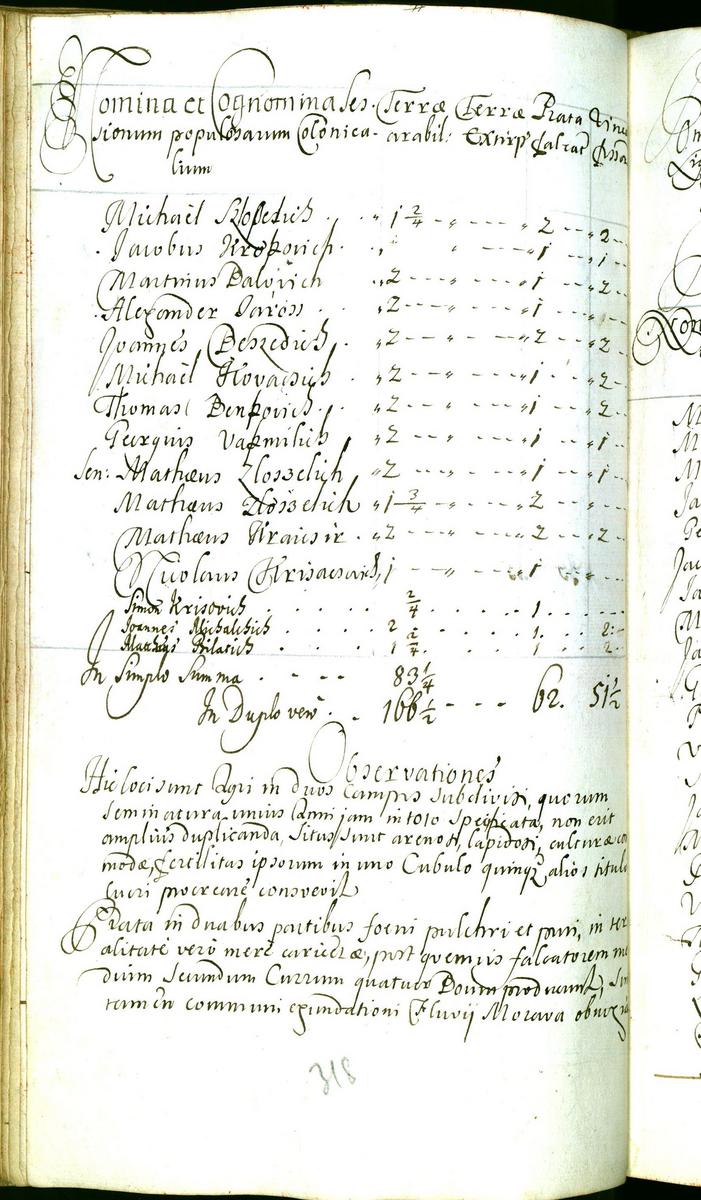 Nomina et Cognomina Ses- Terræ Terræ Prata
sionum populosarum Colonica- arabil: Extirp Falcat
lium
Michaël " 1 2/4 - " - - - " 2 - - " 2 - -
Jacobus Kropovich . " " - - - " 1 - - " 1 - -
Martinus Dalovich . " 2 - - - " - - - " 1 - - " 2 - -
Alexander Jaross . . " 2 - - - " - - - " 1 - -
Joannes Beszedich . " 2 - - - " - - - " 2 - - " 2 - -
Michaël Kovacsich " 2 - - - " - - - " 1 - - " 2 - -
Thomas Benkovich . . " 2 - - - " - - - " 1 - - " 2 - -
Georgius Vaxmilich " 2 - - - " - - - " 1 - - " 1 - -
Sen: Mathæus Zloszelich " 2 - - - " - - - " 1 - - " 1 - -
Mathæus " 1 3/4 - " - - - " 2 - - -
Mathæus Kraicsir . " 2 - - - " - - - " 2 - - " 2 - -
Nicolaus 1 - - - " - - - " 1 - - "
Simon Krisovich . . . . . 2/4 . . . . . 1 . . . . .
Joannes Michalchich . . . 2 . . . . . 1 . . . 2
Mathæus . . . 1 2/4 . . . . . 1 . . . 2
In Simplo Summa . - - - 83 1/4
In Duplo verò . . 166 1/2 - - - 62. 51 1/2
Observationes
Hic loci sunt Agri in duos Campos subdivisi, quorum
seminatura unius Anni jam in toto specificata, non erit
amplius duplicanda, situs sunt arenosi, lapidosi, culturæ
modæ, fertilitas ipsorum in uno Cubulo quinque alios titulo
lucri procreare consvevit
Prata in duabus partibus foeni pulchri et puri, in
alitate verò merè cariceæ, post quemvis falcatorem
dium Secundum Currum quatuor Boum producunt,
tamen communi exundationi Fluvij Morava
318